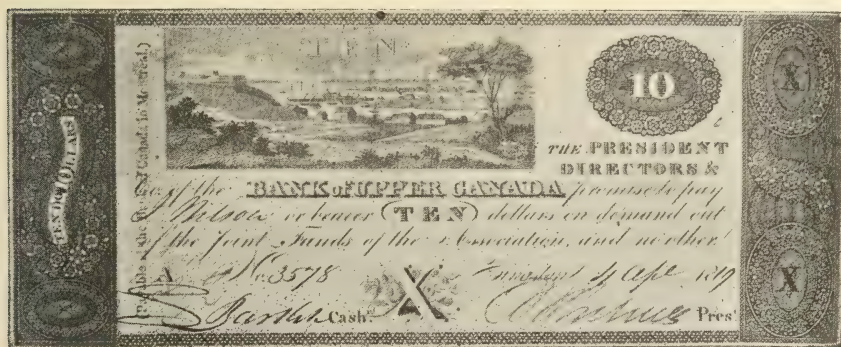 TEN
10
X
TEN DOLLARS
(Payable at the Bank of Canada in Montreal.)
THE PRESIDENT
DIRECTORS &
Co. of the BANK of UPPER CANADA promise to pay
or bearer TEN dollars on demand out
of the Joint Funds of the Association, and no other.
A No. 3578 4 Apl. 1819
X
Cash.
Pres.
X